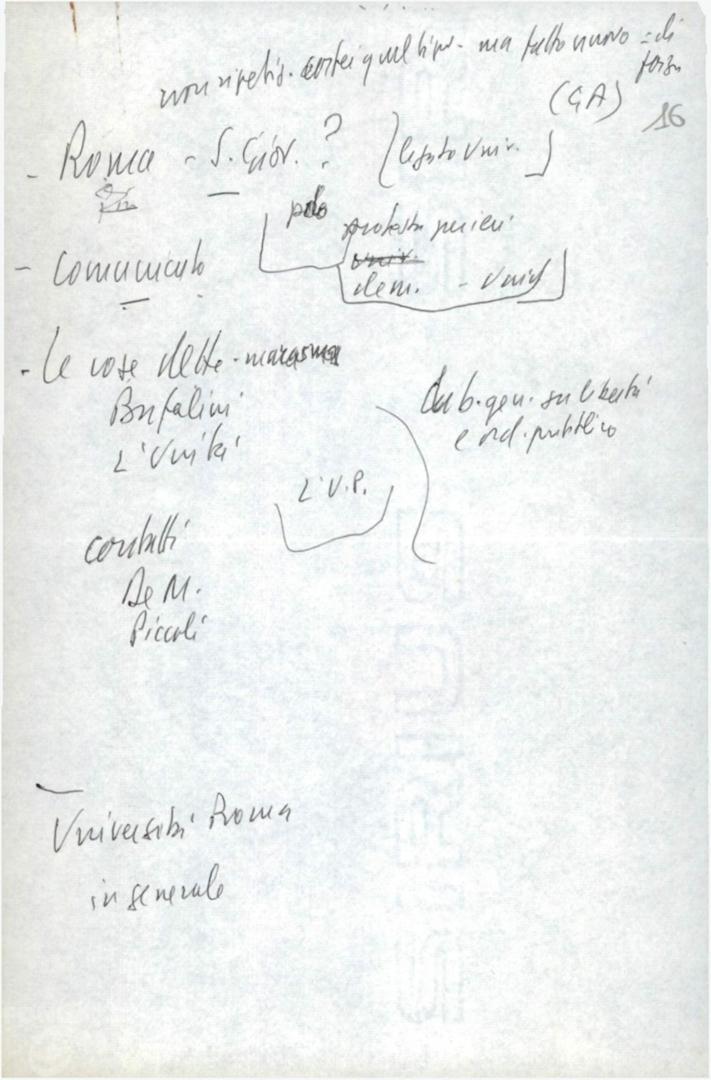 non ripetiz. cortei quel tipo. ma fatto nuovo = di
forza
(GA)
16
- Roma - S. Giov. ? [legato univ.]
polo
protesta
- Comunicato
dem. - unid
- Le cose dette - marasma
Bufalini
L'Unità
Dib. gen. su libertà
e ord. pubblico
L'U.P.
contatti
De M.
Piccoli
Università Roma
in generale